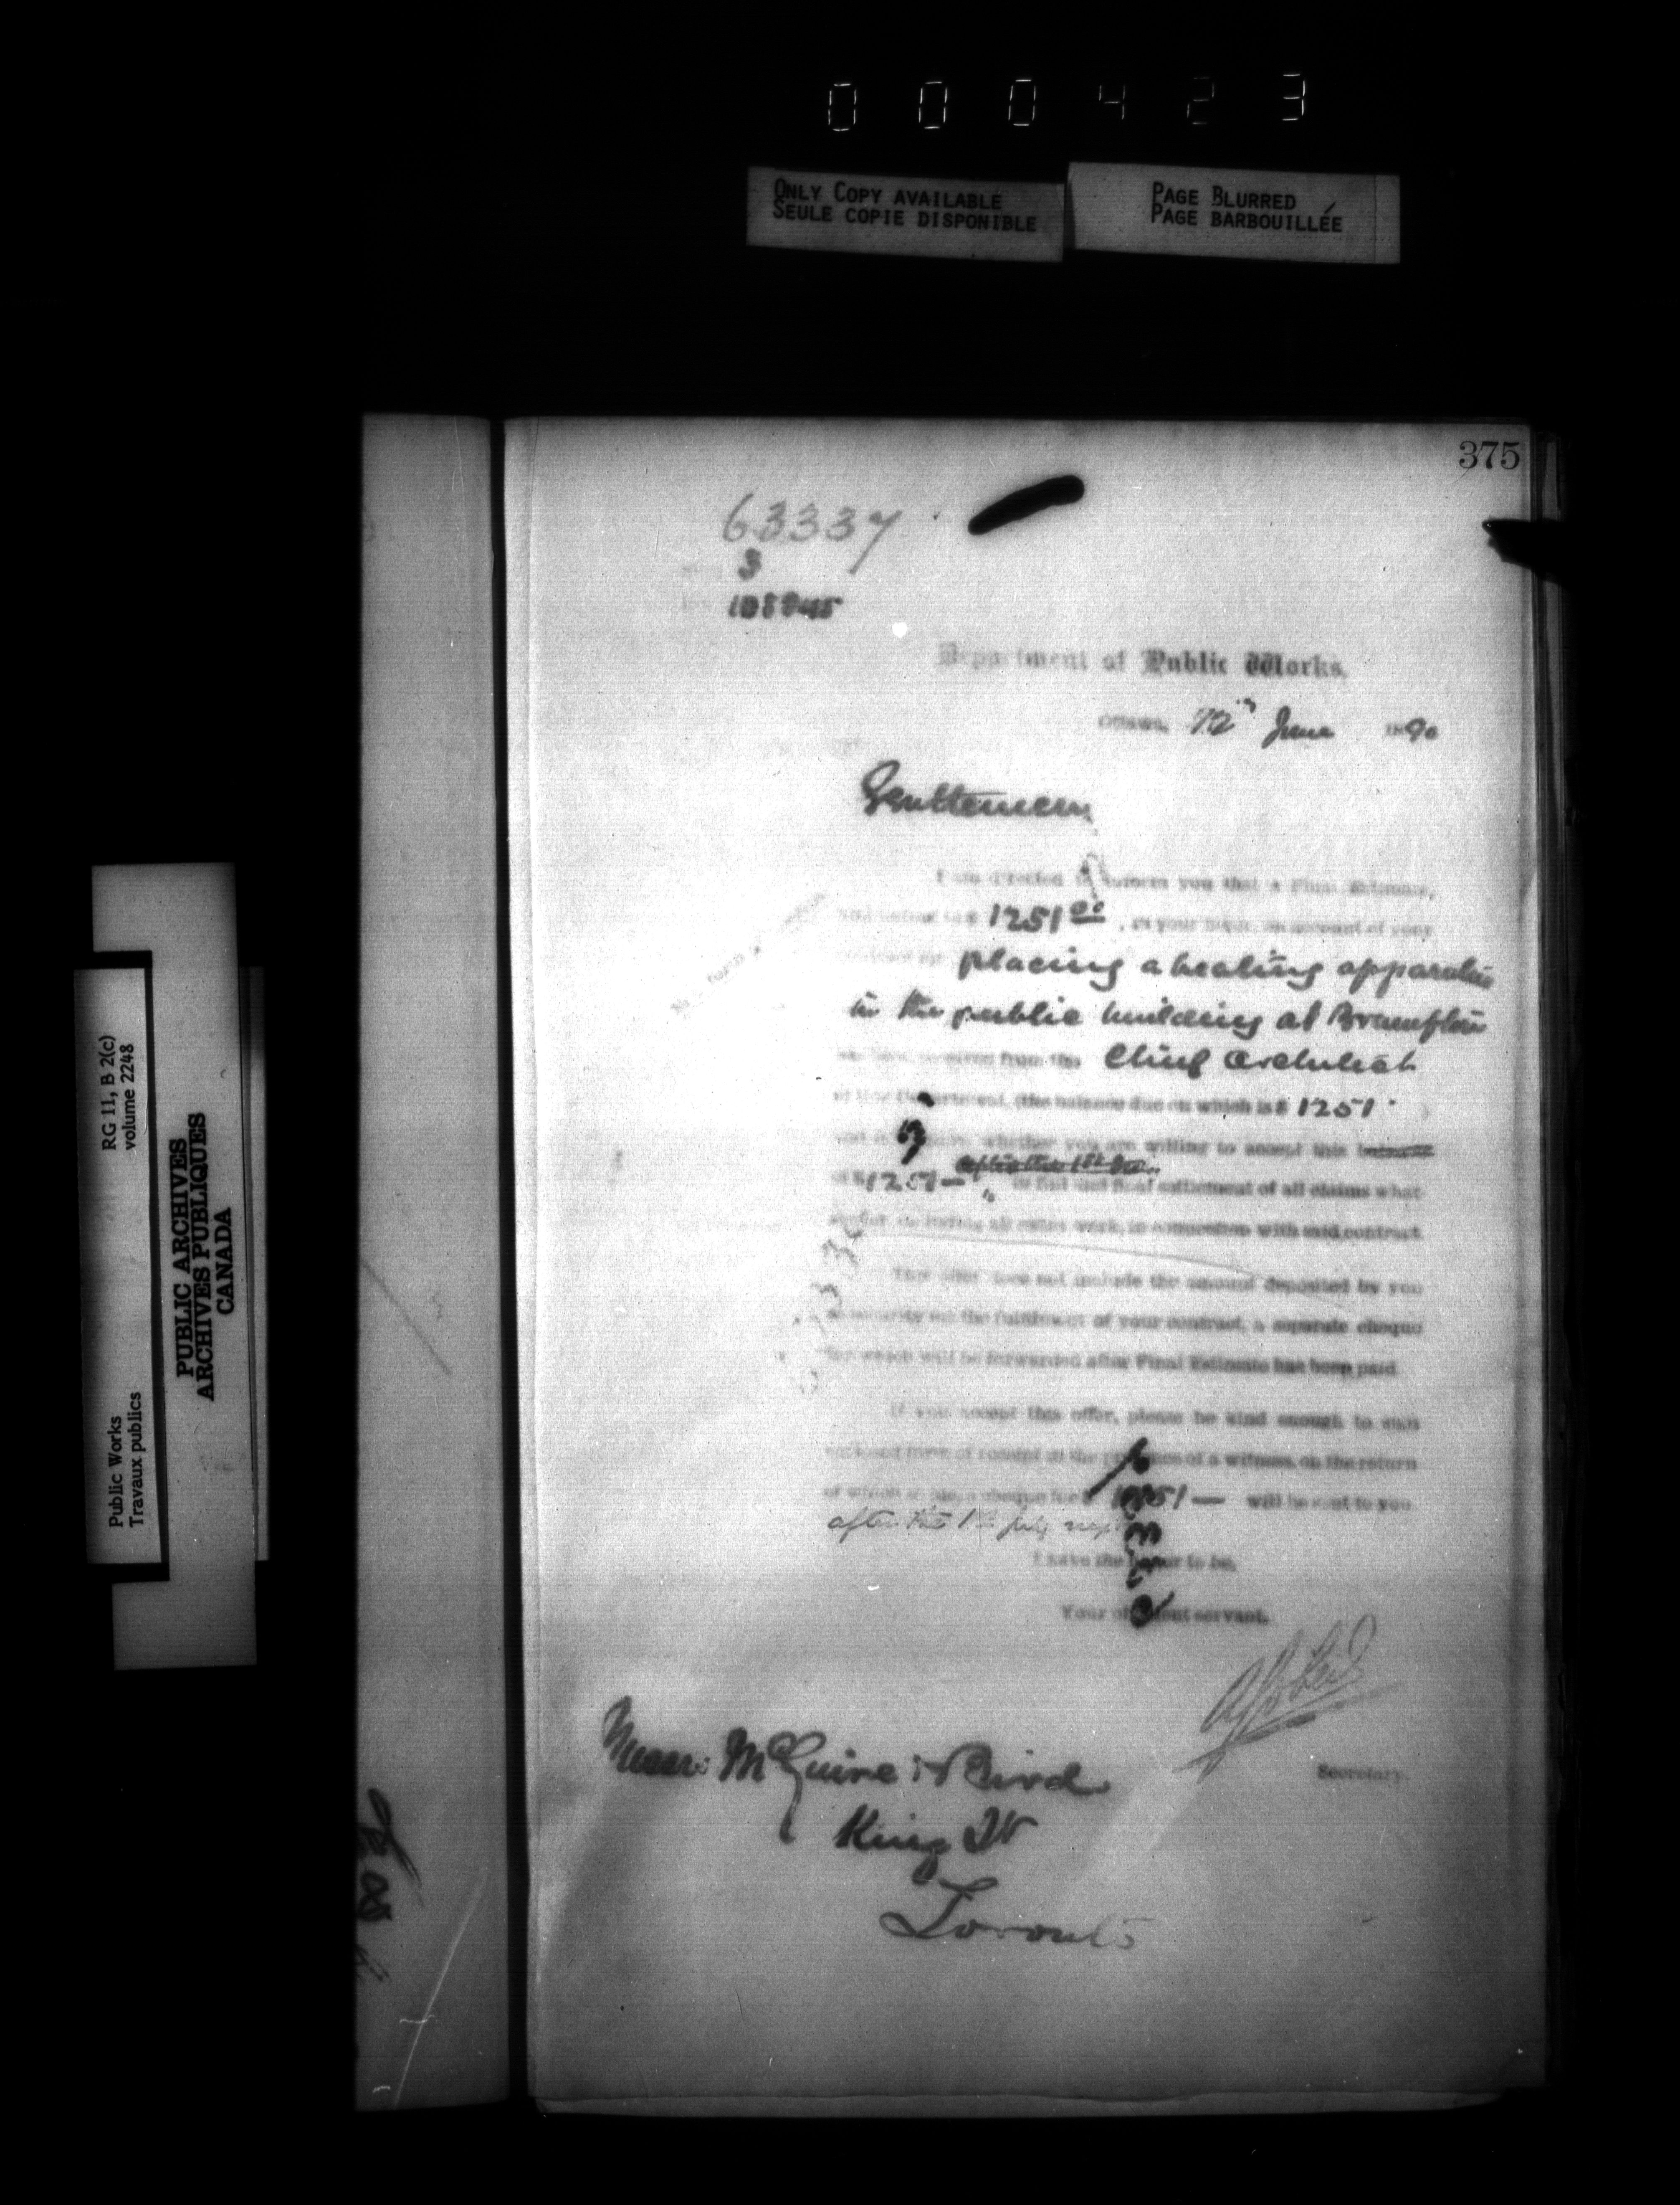 000423
ONLY COPY AVAILABLE
SEULE COPIE DISPONIBLE
PAGE BLURRED
PAGE BARBOUILLÉE
375
63337
3
Department of Public Works.
Ottawa, 12th June 1890
Gentlemen,
I am directed to inform you that a Final Estimate,
1251.00, in your favor, on account of your
contract for placing a heating apparatus
in the public building at Brampton
has been received from the Chief Architect
of this Department, (the balance due on which is $ 1251
and to inquire whether you are willing to accept this balance
of $1251— in full and final settlement of all claims what
soever including all extra work, in connection with said contract.
This offer does not include the amount deposited by you
as security for the fulfilment of your contract, a separate cheque
for which will be forwarded after Final Estimate has been paid
If you accept this offer, please be kind enough to sign
enclosed form of receipt in the presence of a witness, on the return
of which to me, a cheque for $ 1251— will be sent to you
after the 1st July next
I have the honor to be,
Your obedient servant,
Secretary.
Messrs McGuire & Bird
King St
Toronto
Public Works
Travaux publics
RG 11, B 2(c)
volume 2248
PUBLIC ARCHIVES
ARCHIVES PUBLIQUES
CANADA